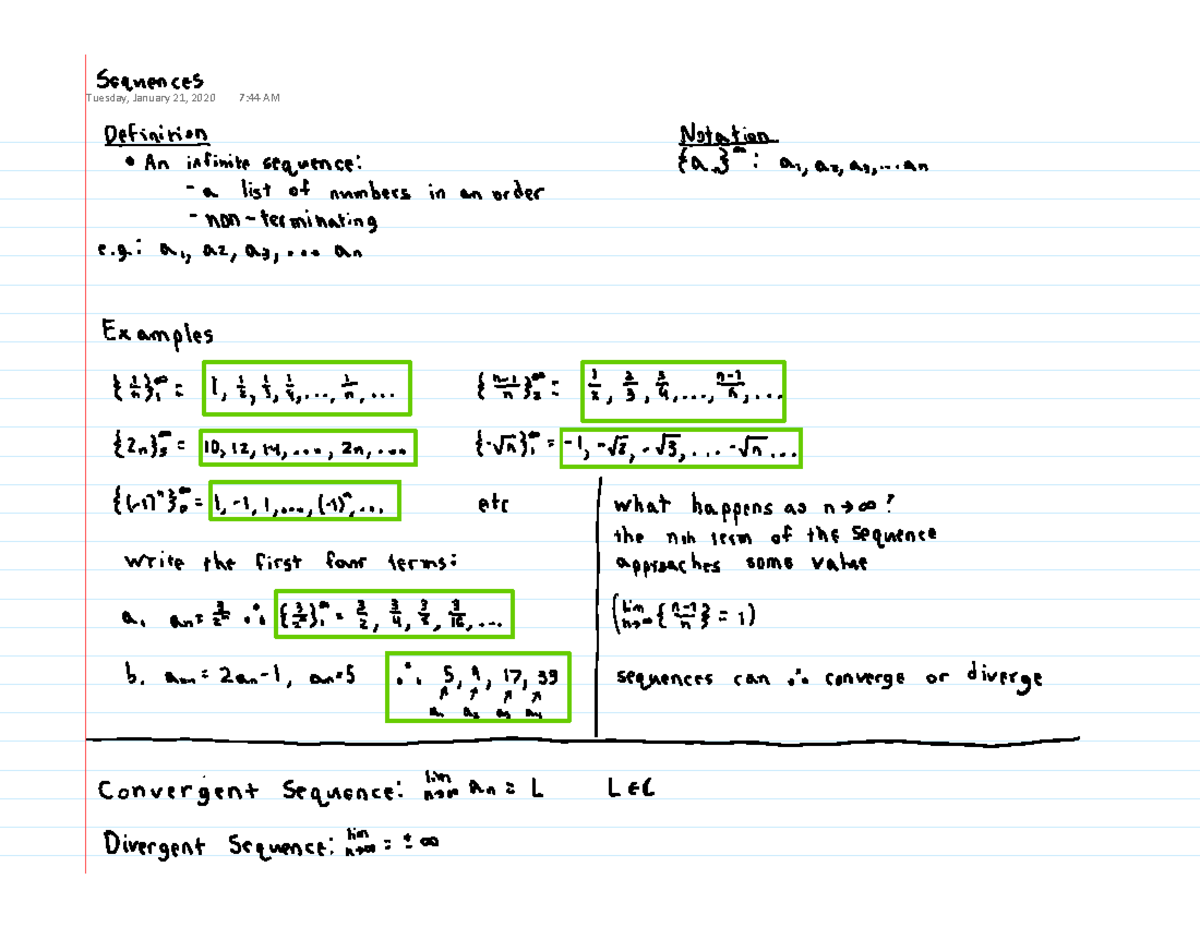 Sequences
Tuesday, January 21, 2020 7:44 AM
Definition
• An infinite sequence:
- a list of numbers in an order
- non-terminating
e.g.: a₁, a₂, a₃, ... aₙ
Notation
{aₙ}^∞ : a₁, a₂, a₃, ... aₙ
Examples
{1/n}₁^∞ = 1, 1/2, 1/3, 1/4, ..., 1/n, ...
{(n-1)/n}₂^∞ = 1/2, 2/3, 3/4, ..., (n-1)/n, ...
{2n}₅^∞ = 10, 12, 14, ..., 2n, ...
{-√n}₁^∞ = -1, -√2, -√3, ... -√n ...
{(-1)ⁿ}₀^∞ = 1, -1, 1, ..., (-1)ⁿ, ...
etc
write the first four terms:
a. aₙ = 3/2ⁿ ∴ {3/2ⁿ}₁^∞ = 3/2, 3/4, 3/8, 3/16, ...
b. = 2aₙ-1, = 5 ∴ 5, 9, 17, 33
a₁ a₂ a₃ a₄
what happens as n→∞?
the nth term of the sequence
approaches some value
(lim n→∞ {(n-1)/n} = 1)
sequences can ∴ converge or diverge
Convergent Sequence: lim n→∞ aₙ = L L ∈ C
Divergent Sequence: lim n→∞ = ± ∞